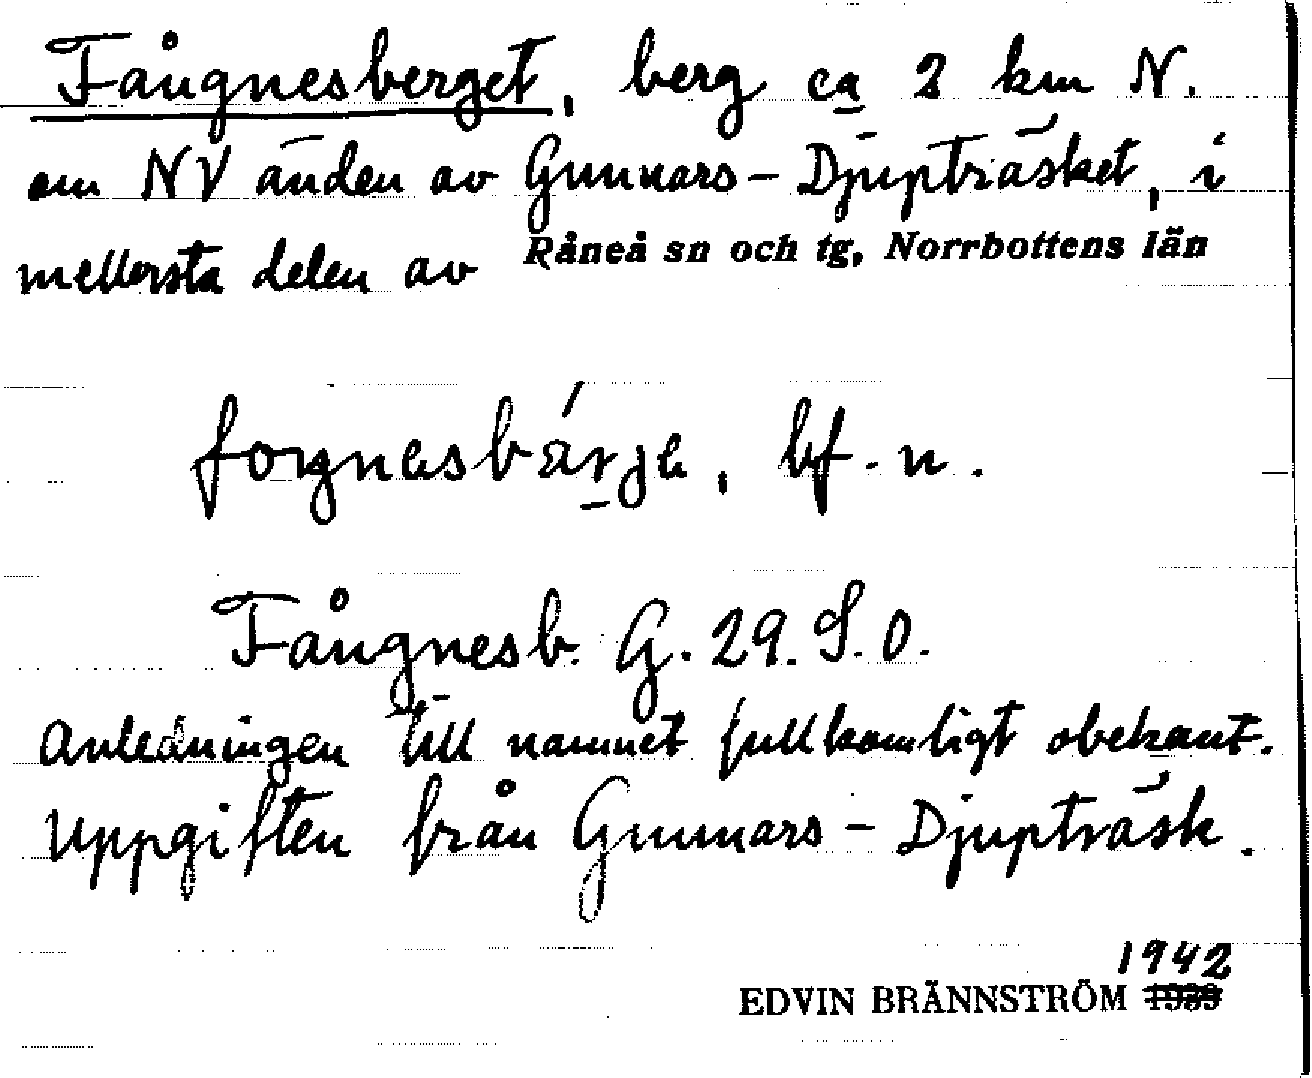 Fångnesberget, berg ca 2 km N.
om NV änden av Gunnars-Djupträsket, i
mellersta delen av Råneå sn och tg, Norrbottens län
foŋnesbärje, bf. n.
Fångnesb. G. 29. S. O.
Anledningen till namnet fullkomligt obekant.
Uppgiften från Gunnars-Djupträsk.
1942
EDVIN BRÄNNSTRÖM 1939